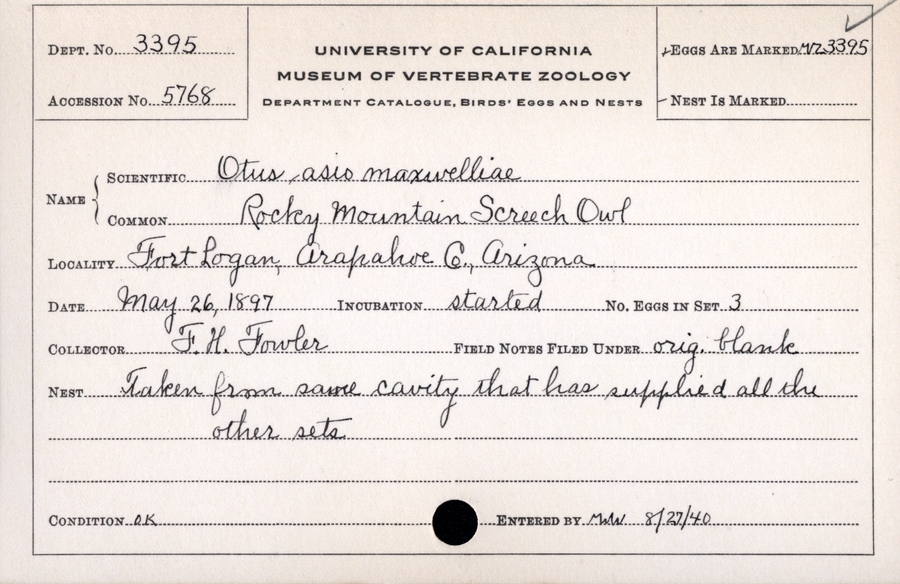 DEPT. No. 3395
ACCESSION No. 5768
UNIVERSITY OF CALIFORNIA
MUSEUM OF VERTEBRATE ZOOLOGY
DEPARTMENT CATALOGUE, BIRDS' EGGS AND NESTS
EGGS ARE MARKED MVZ3395
NEST IS MARKED
NAME
SCIENTIFIC Otus asio maxwelliae
COMMON Rocky Mountain Screech Owl
LOCALITY Fort Logan, Arapahoe Co., Arizona
DATE May 26, 1897 INCUBATION started NO. EGGS IN SET 3
COLLECTOR F. H. Fowler FIELD NOTES FILED UNDER orig. blank
NEST Taken from same cavity that has supplied all the
other sets
CONDITION OK ENTERED BY 8/27/40